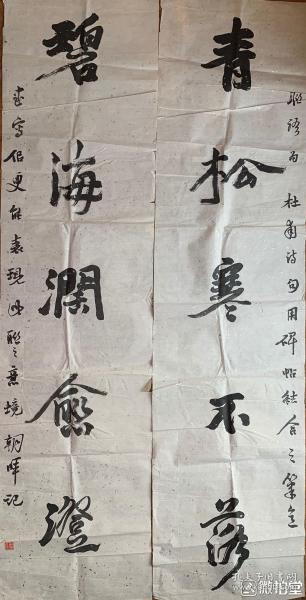 青松寒不落
碧海阔愈澄
联语为杜甫诗句用碑帖结合之笔意
来写但更能表现此联之意境朝晖记
孔夫子旧书网
微拍堂